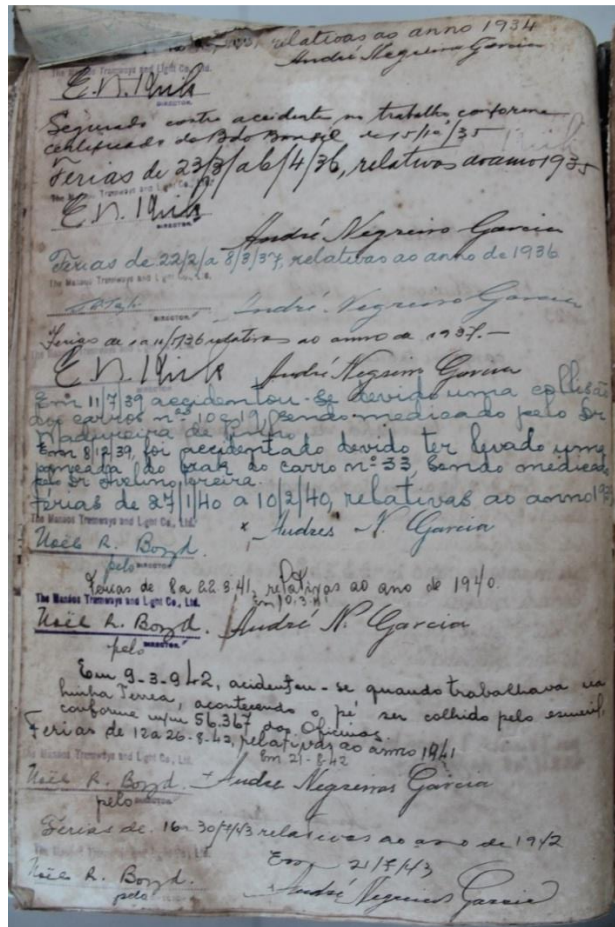 relativas ao anno 1934
André Negreiro Garcia
The Manáos Tramways and Light Co., Ltd.
DIRECTOR.
Segurado contra accidente no trabalho, conforme
certificado do Bdo Brasil de 15/10/35
Ferias de 23/3/a 6/4/36, relativas ao anno 1935
The Manáos Tramways and Light Co., Ltd.
DIRECTOR.
André Negreiro Garcia
Férias de 22/2/a 8/3/37, relativas ao anno de 1936
The Manáos Tramways and Light Co., Ltd.
DIRECTOR.
André Negreiro Garcia
Ferias de relativas ao anno de 1937.—
André Negreiro Garcia
Em 11/7/39 accidentou-se devido uma collisão
dos carros nos. 10 e 19, sendo medicado pelo Dr
Madureira de Pinho
Em 8/2/39, foi accidentado devido ter levado uma
pancada do do carro nº 33, sendo medicado
pelo Dr Avelino Pereira.
férias de 27/1/40 a 10/2/40, relativas ao anno
The Manáos Tramways and Light Co., Ltd.
Noël R. Boyd. Andres N. Garcia
pelo DIRECTOR.
Ferias de 8 a 22.3.41, relativas ao ano de 1940.
The Manáos Tramways and Light Co., Ltd. Em 10.3.41
Noël R. Boyd. André N. Garcia
pelo DIRECTOR.
Em 9-3-942, acidentou-se quando trabalhava na
linha Ferrea, acontecendo o pé ser colhido pelo esmeril,
conforme 56.367 das Oficinas.
Ferias de 12 a 26-8-42, relativas ao anno 1941
The Manáos Tramways and Light Co., Ltd. Em 21-8-42
Noël R. Boyd. André Negreiros Garcia
pelo DIRECTOR.
Ferias de 16 30/7/43 relativas ao ano de 1942
Em 21/7/43
Noël R. Boyd. André Negreiros Garcia
pelo